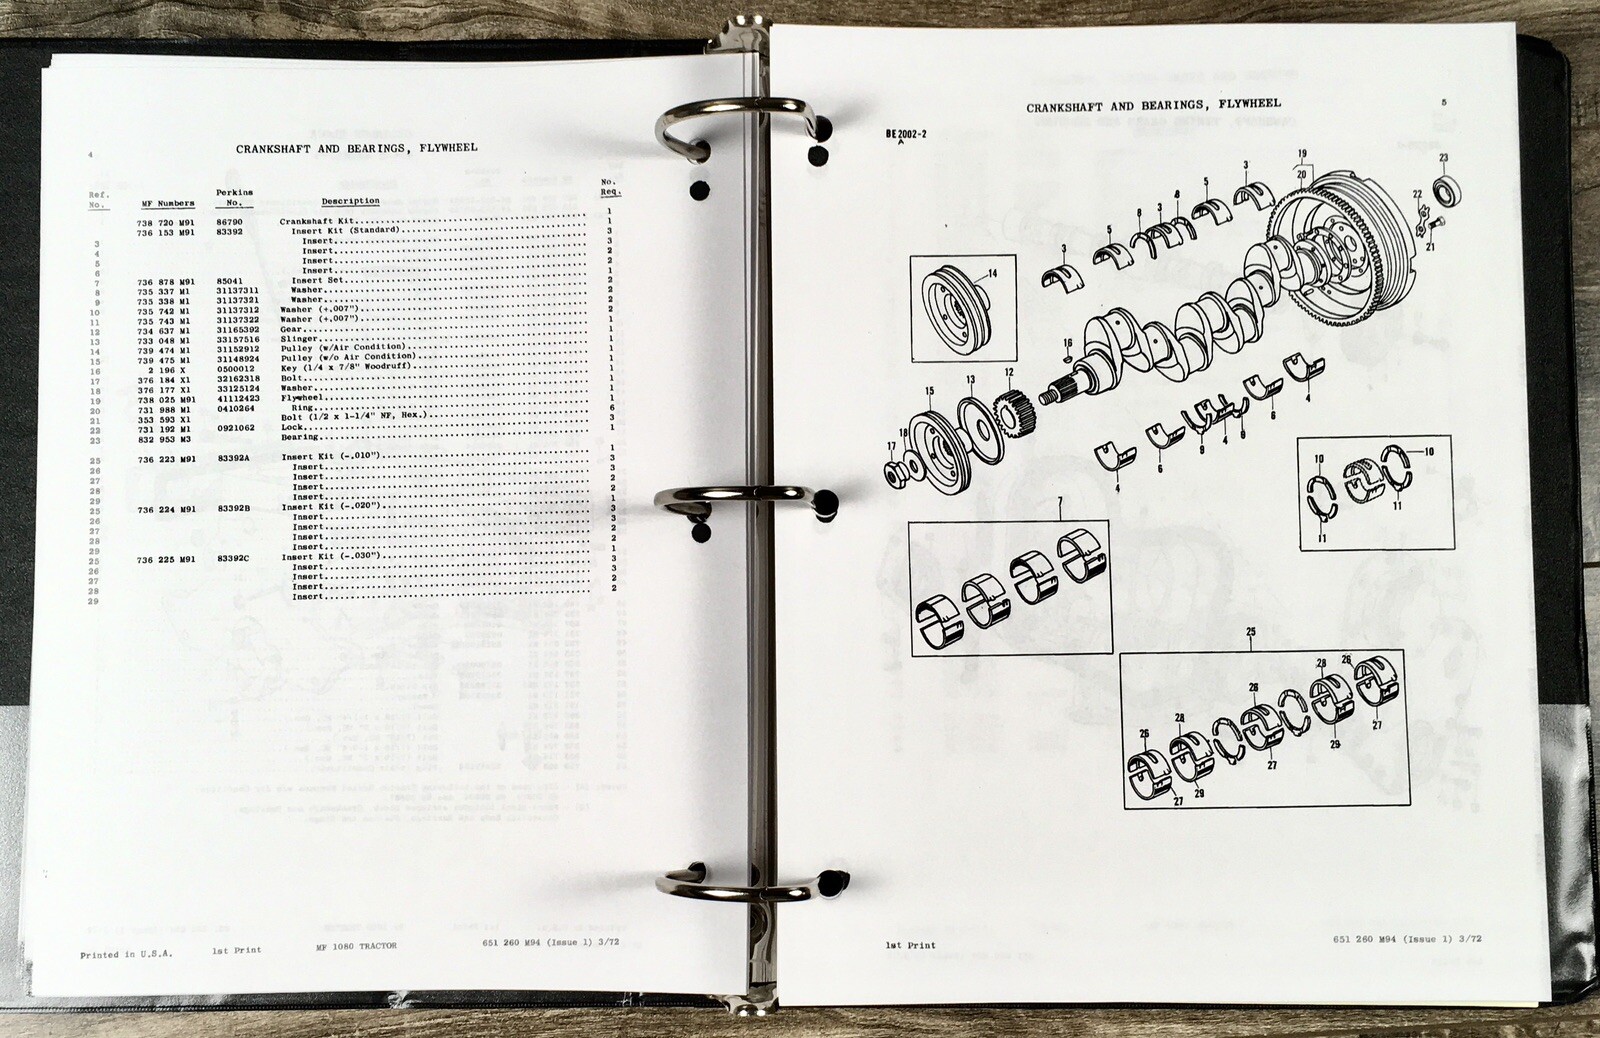 4
CRANKSHAFT AND BEARINGS, FLYWHEEL
Ref. No. MF Numbers Perkins No. Description No. Req.
738 720 M91 86790 Crankshaft Kit 1
736 153 M91 83392 Insert Kit (Standard) 1
3 Insert 3
4 Insert 3
5 Insert 2
6 Insert 2
7 736 878 M91 85041 Insert Set 1
8 735 337 M1 31137311 Washer 2
9 735 338 M1 31137321 Washer 2
10 735 742 M1 31137312 Washer (+.007") 2
11 735 743 M1 31137322 Washer (+.007") 2
12 734 637 M1 31165392 Gear 1
13 733 048 M1 33157516 Slinger 1
14 739 474 M1 31152912 Pulley (w/Air Condition) 1
15 739 475 M1 31148924 Pulley (w/o Air Condition) 1
16 2 196 X 0500012 Key (1/4 x 7/8" Woodruff) 1
17 376 184 X1 32162318 Bolt 1
18 376 177 X1 33125124 Washer 1
19 738 025 M91 41112423 Flywheel 1
20 731 988 M1 0410264 Ring 1
21 353 593 X1 Bolt (1/2 x 1-1/4" NF, Hex.) 6
22 731 192 M1 0921062 Lock 3
23 832 953 M3 Bearing 1
25 736 223 M91 83392A Insert Kit (-.010") 1
26 Insert 3
27 Insert 3
28 Insert 2
29 Insert 2
25 736 224 M91 83392B Insert Kit (-.020") 1
26 Insert 3
27 Insert 3
28 Insert 2
29 Insert 2
25 736 225 M91 83392C Insert Kit (-.030") 1
26 Insert 3
27 Insert 3
28 Insert 2
29 Insert 2
Printed in U.S.A. 1st Print MF 1080 TRACTOR 651 260 M94 (Issue 1) 3/72
CRANKSHAFT AND BEARINGS, FLYWHEEL 5
BE2002-2
A
19
20
23
22
21
3
5
8
3
8
5
3
14
16
12
13
15
18
17
4
6
9
4
9
6
4
10
10
11
11
7
25
26
28
26
28
26
27
29
27
29
27
1st Print 651 260 M94 (Issue 1) 3/72